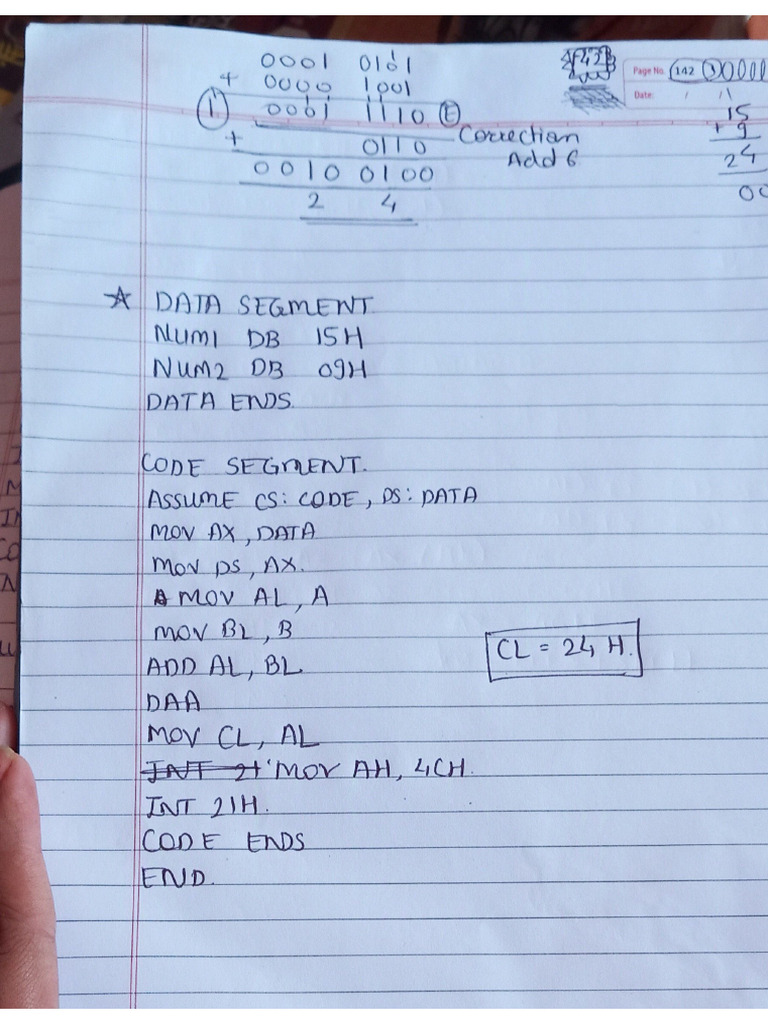 0001 0101
+ 0000 1001
① 0001 1110 Ⓔ
+ 0110 Correction
Add 6
0010 0100
2 4
Page No. 142
Date:
15
+ 9
24
☆ DATA SEGMENT
NUM1 DB 15H
NUM2 DB 09H
DATA ENDS
CODE SEGMENT.
ASSUME CS: CODE, DS: DATA
MOV AX, DATA
MOV DS, AX.
MOV AL, A
MOV BL, B
ADD AL, BL
DAA
MOV CL, AL
INT 21 MOV AH, 4CH.
INT 21H.
CODE ENDS
END.
CL = 24 H.